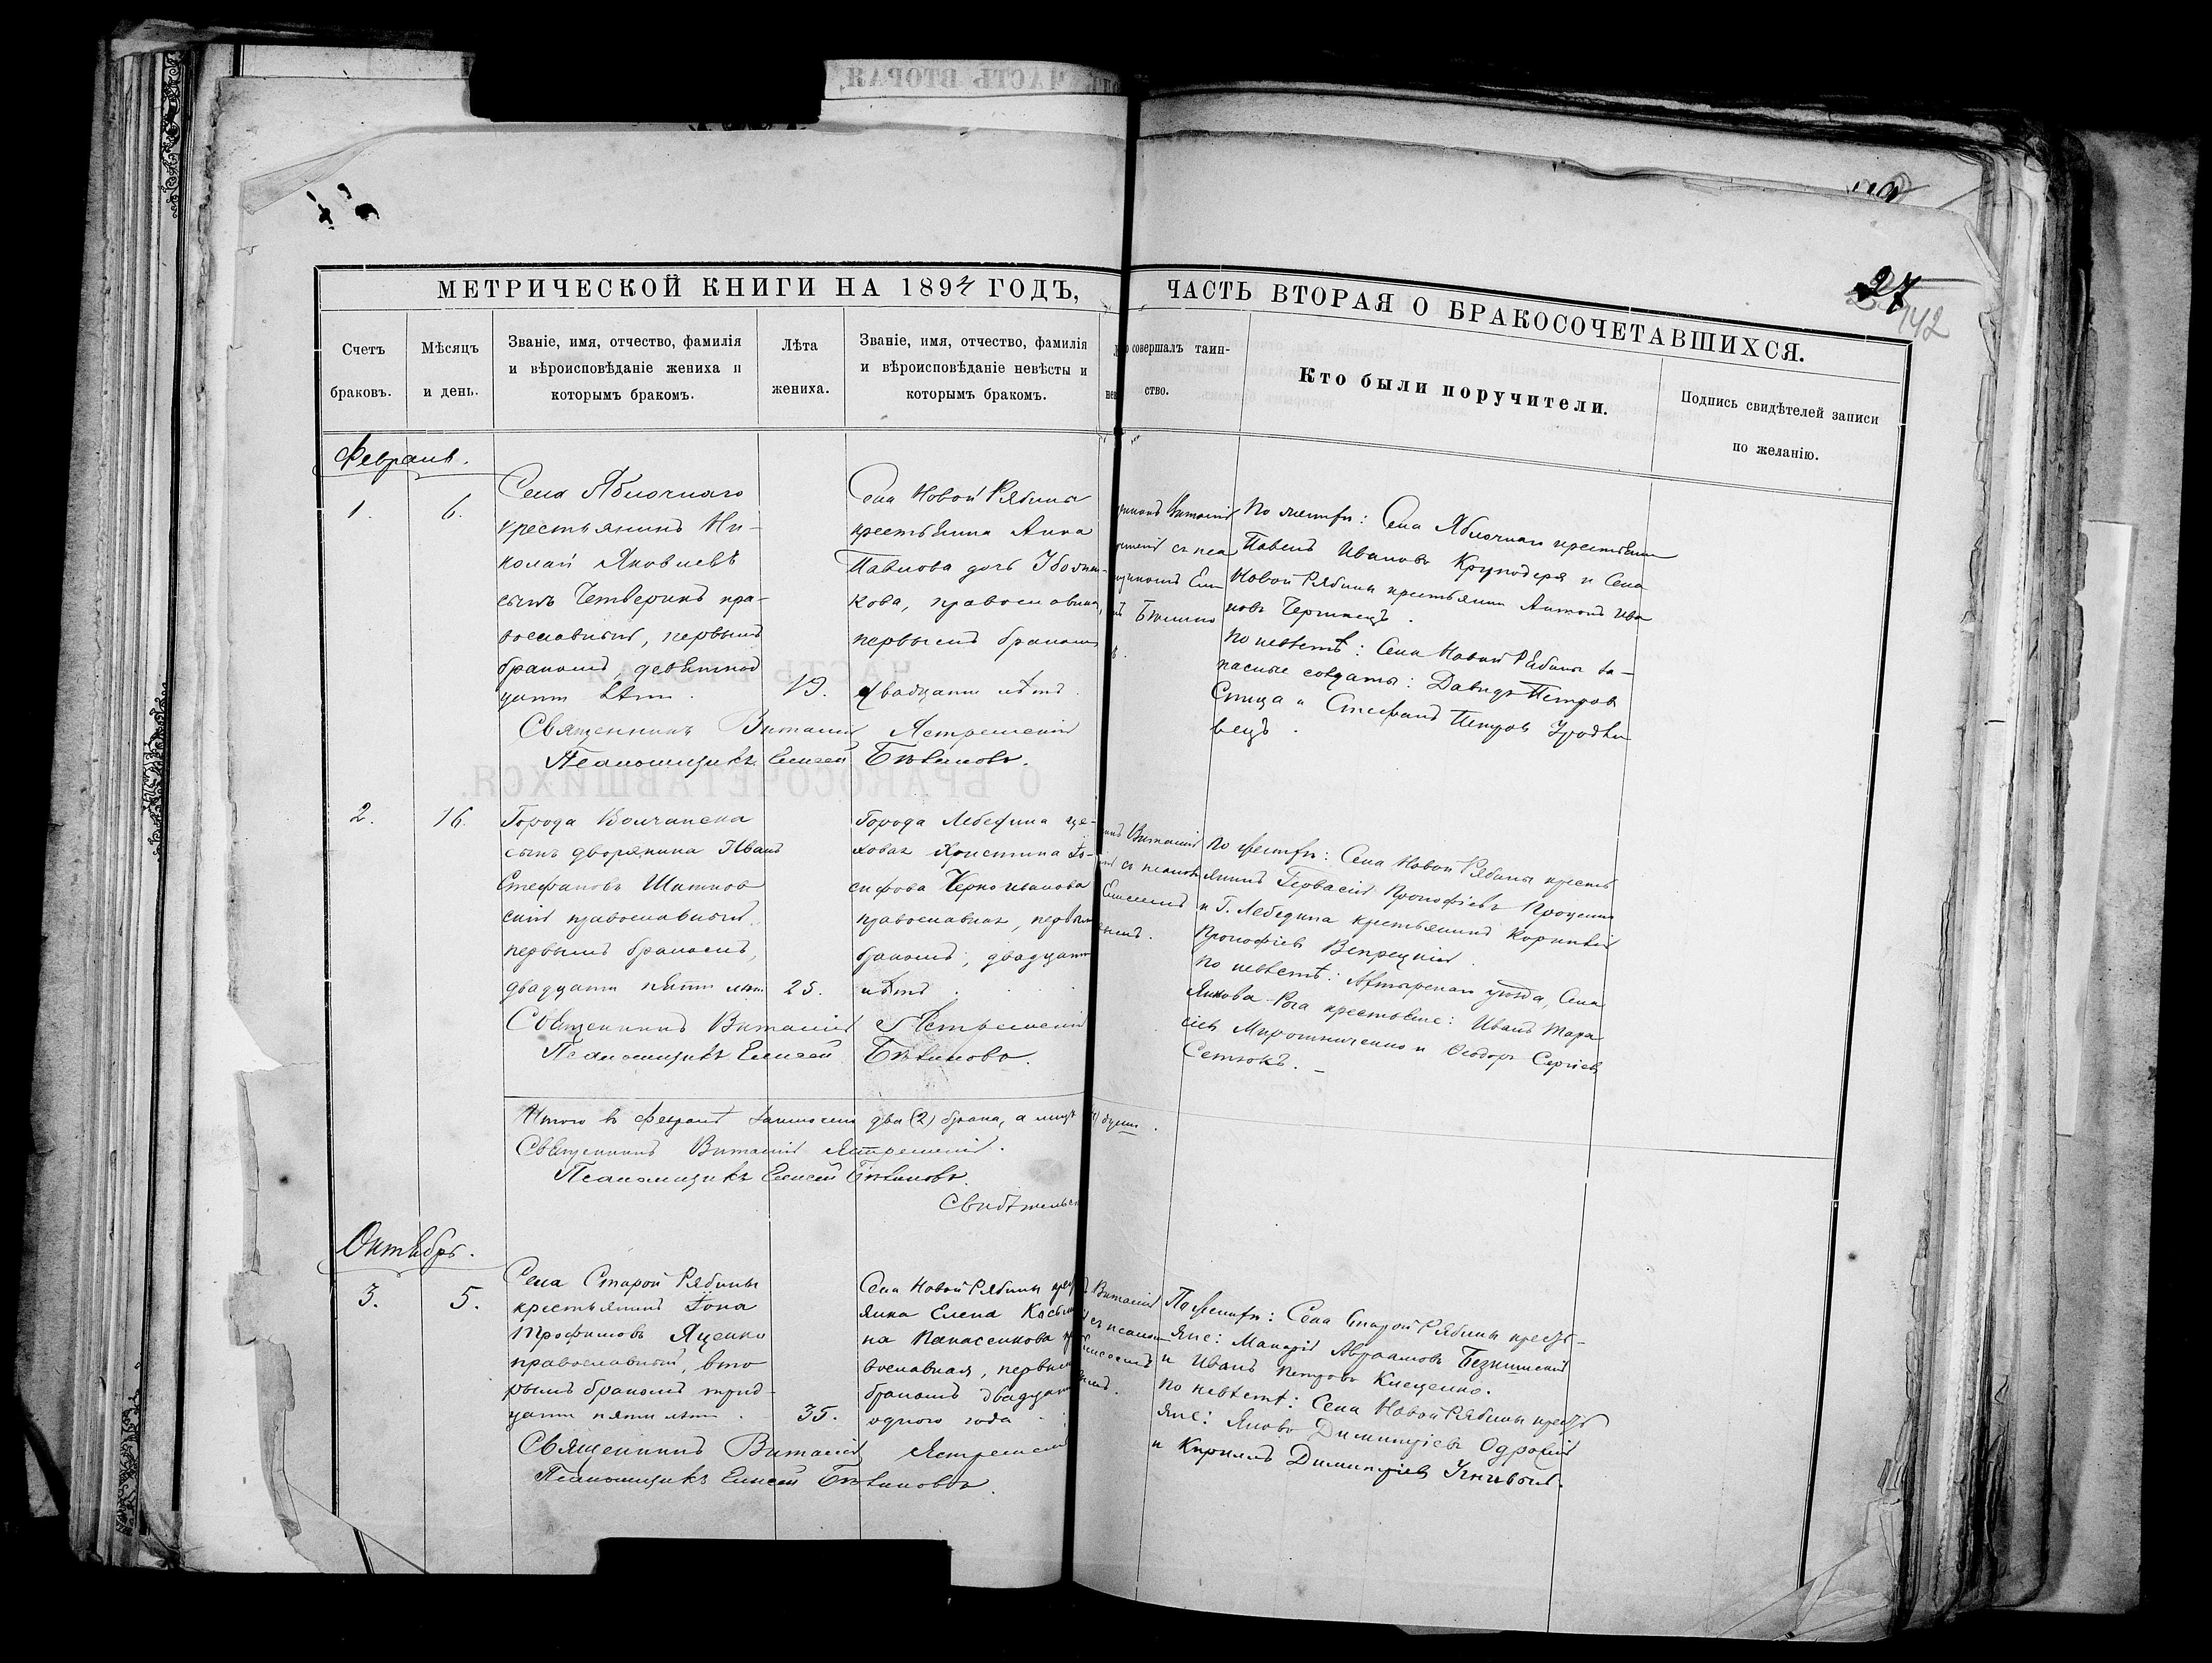 МЕТРИЧЕСКОЙ КНИГИ НА 1894 ГОДЪ,
ЧАСТЬ ВТОРАЯ О БРАКОСОЧЕТАВШИХСЯ.
27
142
Счетъ браковъ.
Мѣсяцъ и день.
Званіе, имя, отчество, фамилія
и вѣроисповѣданіе жениха и
которымъ бракомъ.
Лѣта жениха.
Званіе, имя, отчество, фамилія
и вѣроисповѣданіе невѣсты и
которымъ бракомъ.
совершалъ таин-
ство.
Кто были поручители.
Подпись свидѣтелей записи
по желанію.
Февраль.
1.
6.
Села Яблочнаго
крестьянинъ Ни-
колай Яковлевъ
сынъ Четверикъ пра-
вославный, первымъ
бракомъ, девятнад
цати лѣтъ.
19.
Села Новой Рябины
крестьянка Анна
Павлова дочь
кова, православная,
первымъ бракомъ
двадцати лѣтъ.
Виталій
По женихѣ: Села Яблочнаго крестьяни
Павелъ Ивановъ Круподеря и Села
Новой Рябины крестьянин Антонъ Ива
новъ
По невѣстѣ: Села Новой Рябины за-
пасные солдаты: Давидъ Петровъ
Спица и Стефанъ Петровъ
вецъ.
Священникъ Виталій Ястремскій
Псаломщикъ Елисей Бѣликовъ.
2.
16.
Города Волчанска
сынъ дворянина Иванъ
Стефановъ Шатков
скій православный
первымъ бракомъ,
двадцати пяти лѣт.
25.
Города Лебедина це-
ховая Христина Іо-
сифова
православная, первым
бракомъ, двадцати
лѣтъ.
Виталій
съ псалом
Елисеемъ
По женихѣ: Села Новой Рябины кресть
янинъ Гервасій Прокофіевъ Проценко
и Г. Лебедина крестьянинъ Корнилій
Прокофіев Вепрецкій.
По невѣстѣ: Ахтырскаго уѣзда, Села
Янкова-Рога крестьяне: Иванъ Тара
сіев Мирошниченко и Ѳеодоръ Сергіев
Сетюкъ. –
Священникъ Виталій Ястремскій
Псаломщикъ Елисей Бѣликовъ.
Итого въ Февралѣ записано два (2) брака, а лицъ
душ.
Священникъ Виталій Ястремскій.
Псаломщикъ Елисей Бѣликовъ.
Свидѣтельс
Октябрь.
3.
5.
Села Старой Рябины
крестьянинъ Іона
Трофимовъ Яценко
православный, вто
рымъ бракомъ трид-
цати пяти лѣт.
35.
Села Новой Рябины крес
янка Елена Косьми
на Панасенкова пра
вославная, первым
бракомъ двадцати
одного года.
Виталій
съ псалом
По женихѣ: Села Старой Рябины кресть-
яне: Макарій Авраамовъ
и Иванъ Петровъ Клеценко.
По невѣстѣ: Села Новой Рябины кресть
яне: Яковъ Димитріевъ
и Кириллъ Димитріев
Священникъ Виталій Ястремскій
Псаломщикъ Елисей Бѣликовъ.